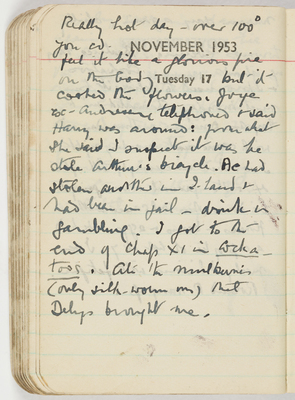 Really hot day - over 100°
you cd.
NOVEMBER 1953
feel it like a glorious fire
on the body
Tuesday 17
but it
cooked the flowers. Joyce
telephoned & said
Harry was around: from what
she said I suspect it was he
stole Arthur's bicycle. He had
stolen another in Q'land &
had been in jail - drink &
gambling. I got to the
end of Chap XI in Cocka-
toos. Ate the mulberries
(only silk-worm ones) that
Delys brought me.